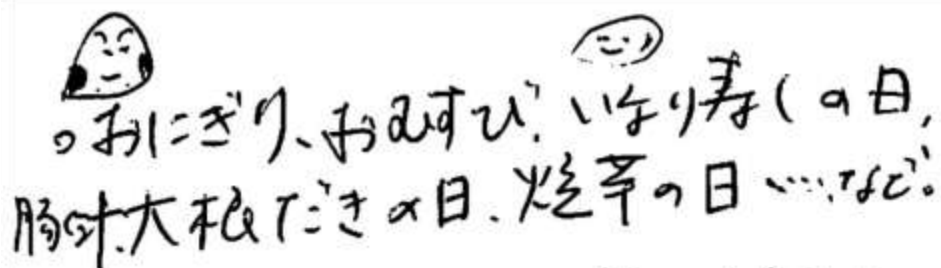 。おにぎり、おむすび、いなり寿しの日、
豚汁、大根だきの日、焼芋の日……など。